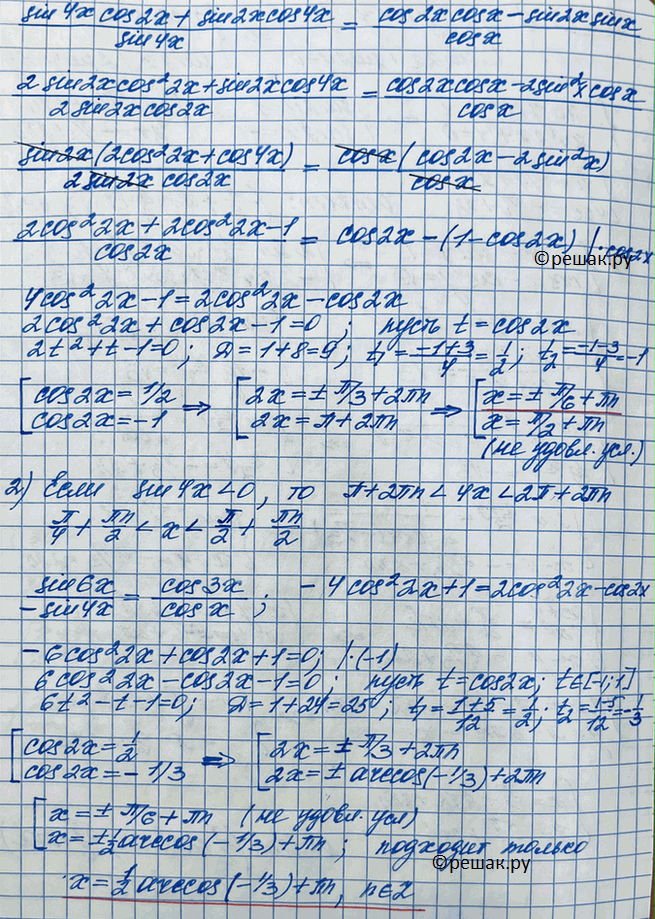 (sin 4x cos 2x + sin 2x cos 4x)/(sin 4x) = (cos 2x cos x − sin 2x sin x)/(cos x)
(2 sin 2x cos² 2x + sin 2x cos 4x)/(2 sin 2x cos 2x) = (cos 2x cos x − 2 sin² x cos x)/(cos x)
(sin 2x (2cos² 2x + cos 4x))/(2 sin 2x cos 2x) = (cos x (cos 2x − 2 sin² x))/(cos x)
(2cos² 2x + 2cos² 2x − 1)/(cos 2x) = cos 2x − (1 − cos 2x) | · cos 2x
©решак.ру
4cos² 2x − 1 = 2cos² 2x − cos 2x
2cos² 2x + cos 2x − 1 = 0 ; пусть t = cos 2x
2t² + t − 1 = 0 ; Д = 1 + 8 = 9 ; t₁ = (−1+3)/4 = 1/2 ; t₂ = (−1−3)/4 = −1
[ cos 2x = 1/2 ⇒ [ 2x = ± π/3 + 2πn ⇒ [ x = ± π/6 + πn
cos 2x = −1 2x = π + 2πn x = π/2 + πn
(не удовл. усл.)
2) Если sin 4x < 0, то π + 2πn < 4x < 2π + 2πn
π/4 + πn/2 < x < π/2 + πn/2
(sin 6x)/(−sin 4x) = (cos 3x)/(cos x) ; − 4cos² 2x + 1 = 2cos² 2x − cos 2x
− 6cos² 2x + cos 2x + 1 = 0 ; | · (−1)
6cos² 2x − cos 2x − 1 = 0 ; пусть t = cos 2x ; t ∈ [−1; 1]
6t² − t − 1 = 0 ; Д = 1 + 24 = 25 ; t₁ = (1+5)/12 = 1/2 ; t₂ = (1−5)/12 = −1/3
[ cos 2x = 1/2 ⇒ [ 2x = ± π/3 + 2πn
cos 2x = − 1/3 2x = ± arccos(−1/3) + 2πn
[ x = ± π/6 + πn (не удовл. усл)
x = ± 1/2 arccos(−1/3) + πn ; подходит только
©решак.ру
x = 1/2 arccos(−1/3) + πn, n ∈ Z